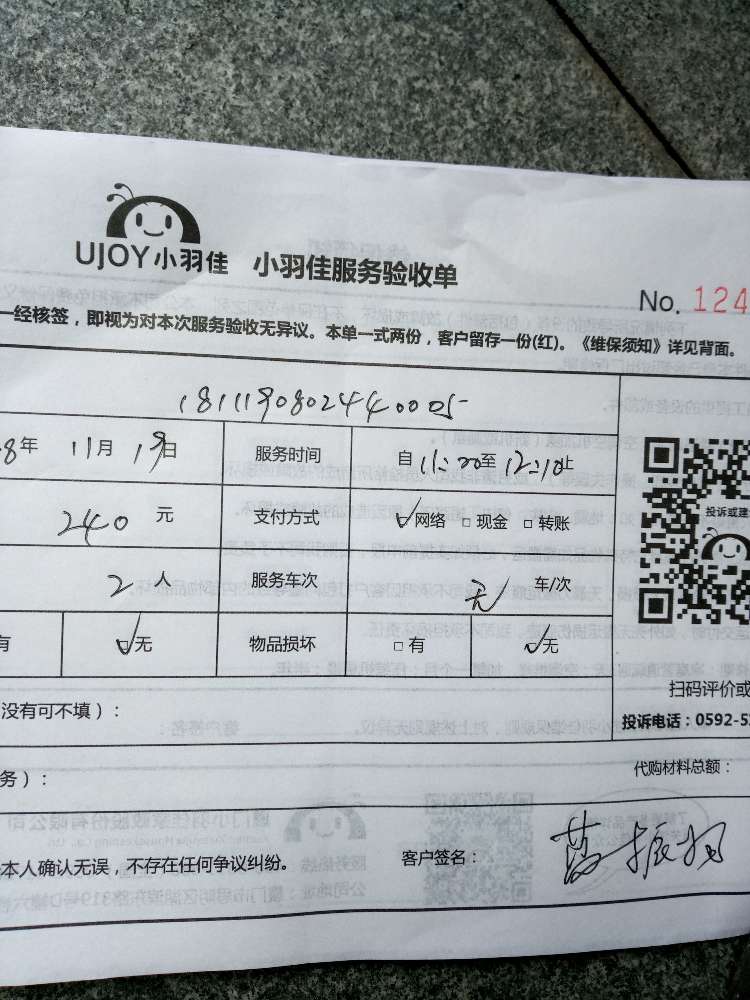 UJOY小羽佳 小羽佳服务验收单
No. 124
一经核签，即视为对本次服务验收无异议。本单一式两份，客户留存一份(红)。《维保须知》详见背面。
18111908024440005
8年 11月 19日 服务时间 自 11:00至 12:10止
240 元 支付方式 ☑网络 □现金 □转账
投诉或建
2 人 服务车次 无 车/次
有 ☑无 物品损坏 □有 ☑无
扫码评价或
没有可不填）：
投诉电话：0592-5
务）：
代购材料总额：
本人确认无误，不存在任何争议纠纷。 客户签名：